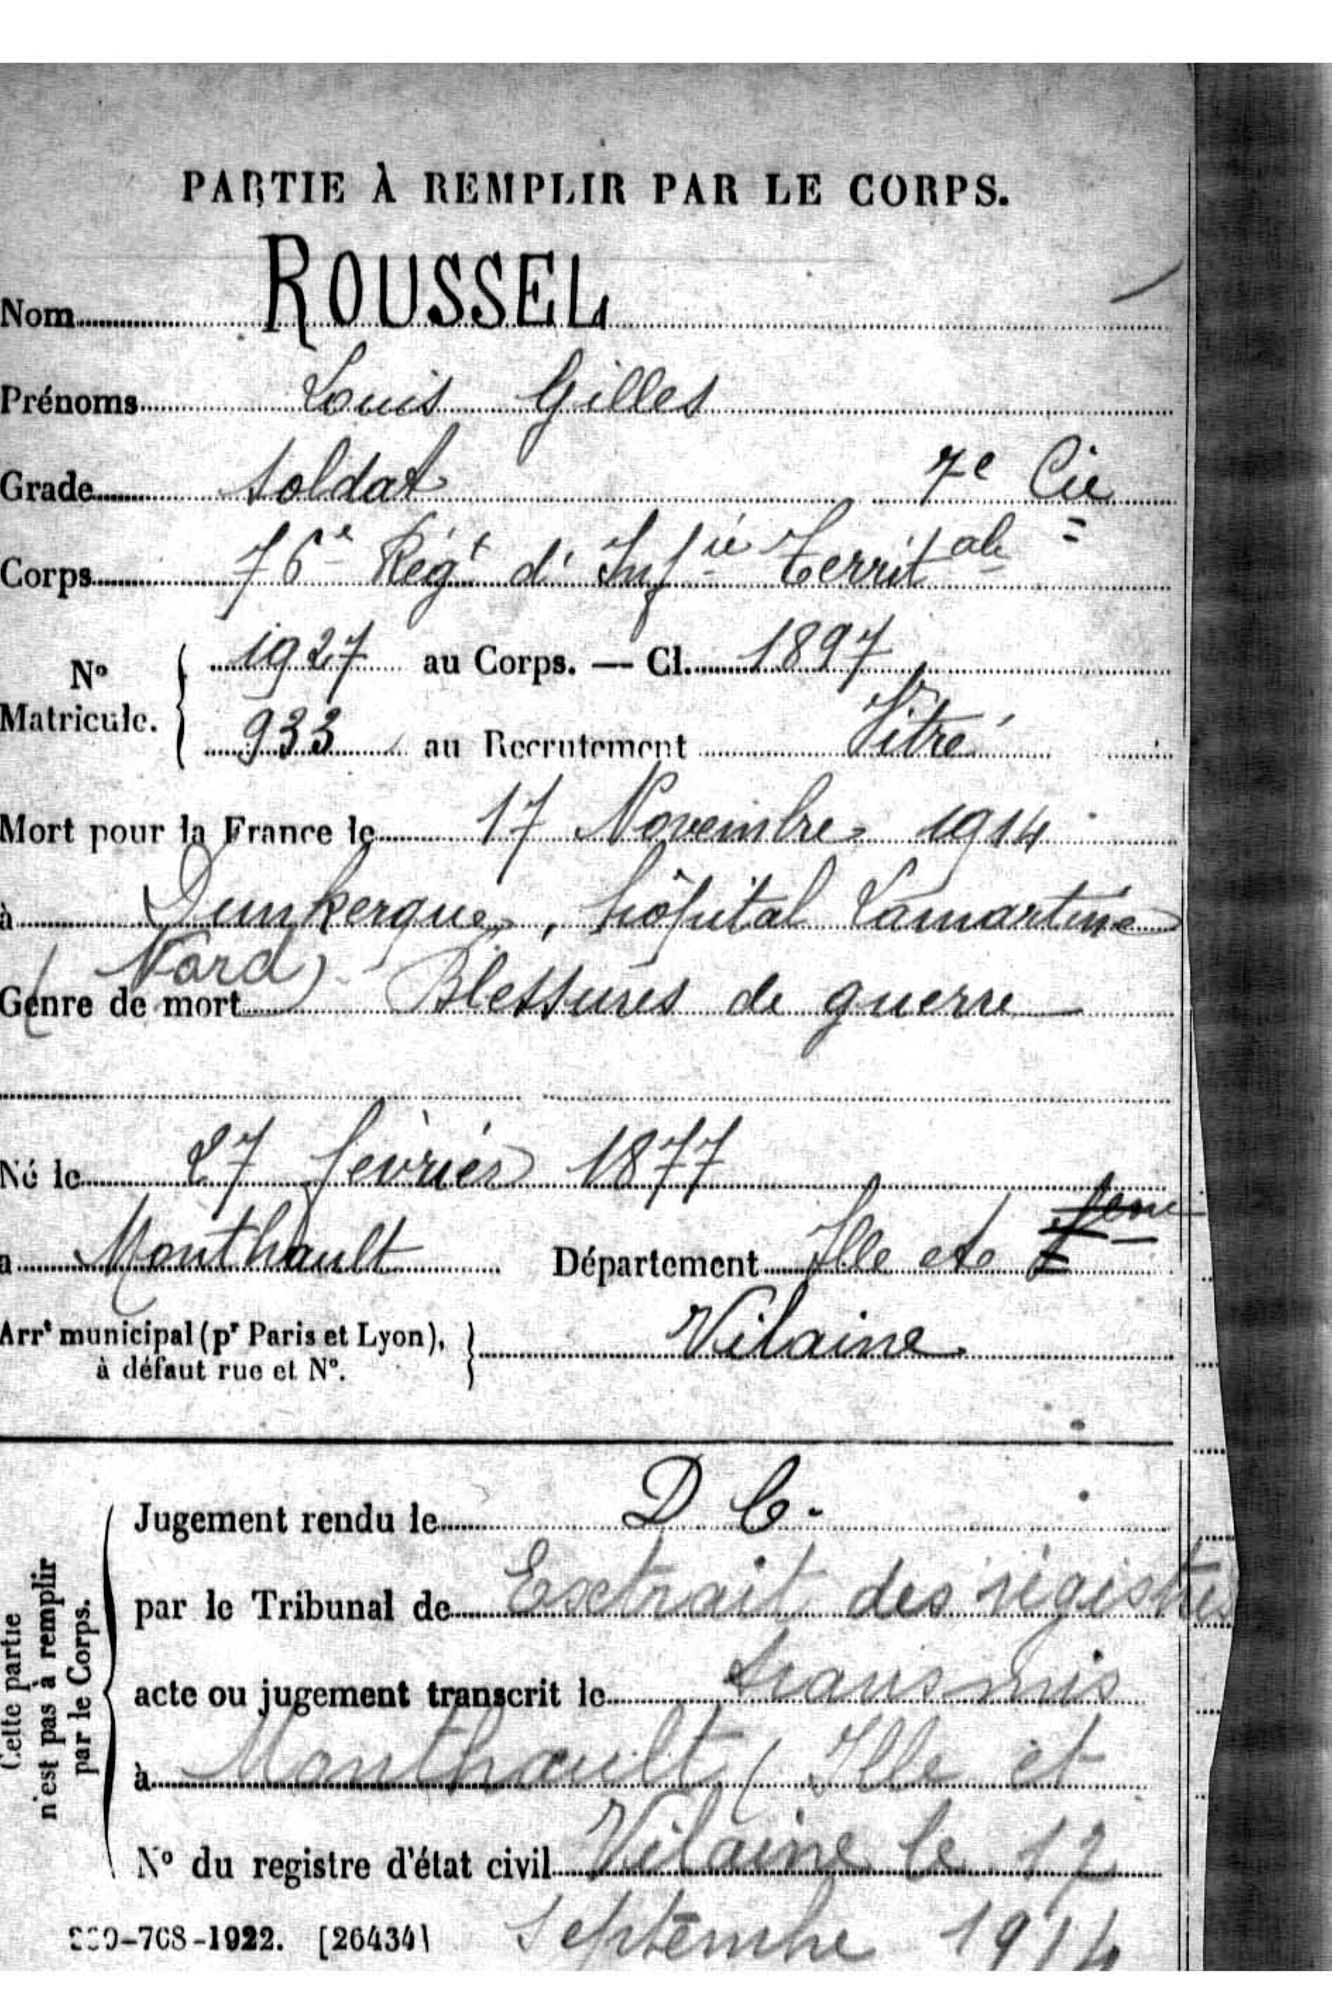 PARTIE À REMPLIR PAR LE CORPS.
Nom ROUSSEL
Prénoms Louis Gilles
Grade soldat 7e Cie
Corps 76e Régt d'Infie Territale
No Matricule. 1927 au Corps. — Cl. 1897
933 au Recrutement Vitré
Mort pour la France le 17 Novembre 1914
à Dunkerque, hôpital Lamartine
(Nord)
Genre de mort Blessures de guerre
Né le 27 février 1877
à Monthault Département Ille et
Arrt municipal (pr Paris et Lyon), à défaut rue et No. Vilaine
Cette partie n'est pas à remplir par le Corps.
Jugement rendu le D C.
par le Tribunal de Extrait des régistres
acte ou jugement transcrit le transmis
à Monthault (Ille et
No du registre d'état civil Vilaine le 12
-708-1922. [26434] Septembre 1914